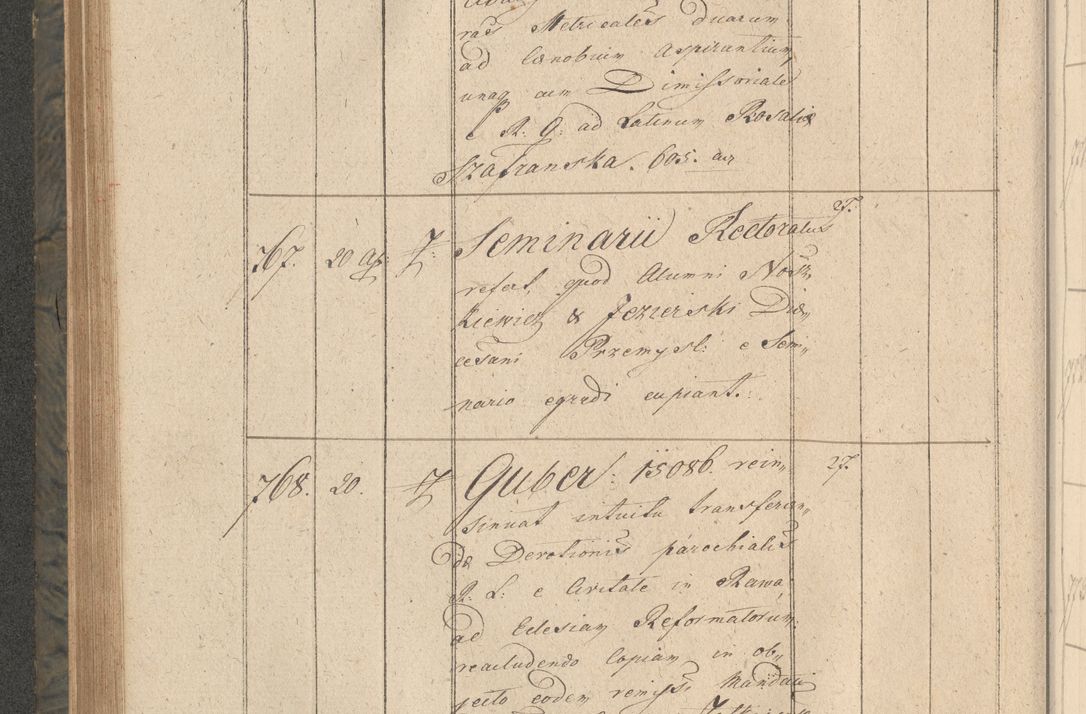 ras Metricales duarum
ad Cænobium aspirantium,
unaq cum Dimissoriale
R: G: ad Latinum Rosaliæ
Szafranska. 605.
767. 20 Ap: 7. Seminarii Rectoratus 27.
refert, quod Alumni Nosz„
kiewicz & Jezierski Diæ„
cesani Przemysl: e Sem„
nario egredi cupiant.
768. 20. 7 Guber: 15086. rein„ 27.
sinuat intuitu transferen„
dæ Devotionis parochialis
R: L: e Civitate in Rawa
ad Eclesiam Reformatorum
reacludendo Copiam in ob„
jecto eodem remissi Mandati